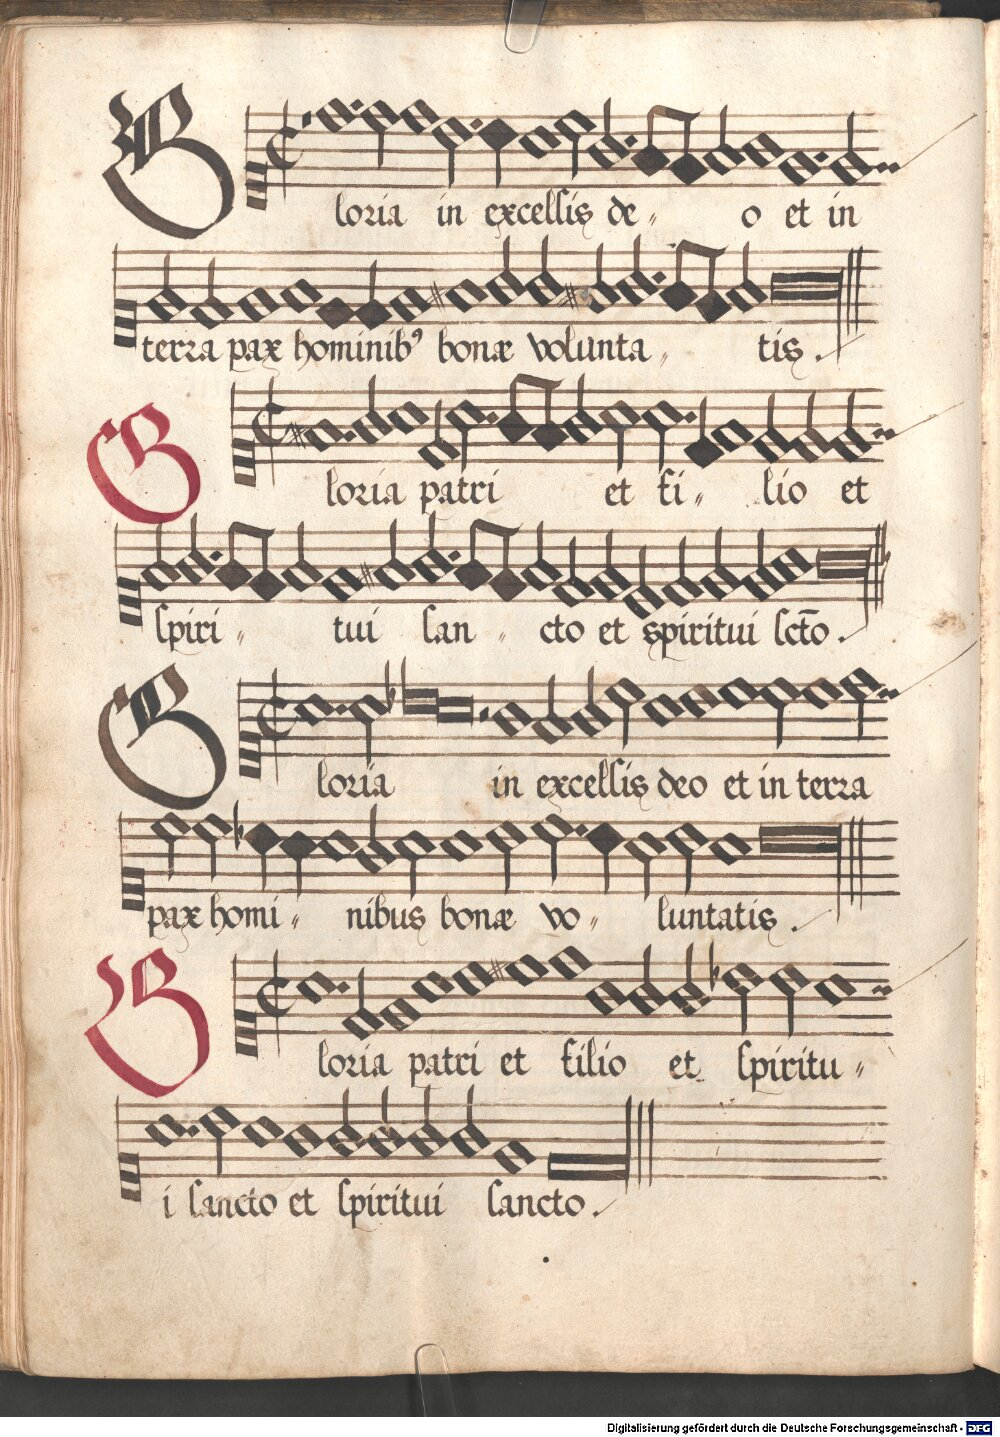 Gloria in excelsis de〃 o et in
terra pax hominib⁹ bonæ volunta〃 tis.
Gloria patri et fi〃 lio et
spiri〃 tui san〃 cto et spiritui sc̅to.
Gloria in excelsis deo et in terra
pax homi〃 nibus bonæ vo〃 luntatis.
Gloria patri et filio et spiritu〃
i sancto et spiritui sancto.
Digitalisierung gefördert durch die Deutsche Forschungsgemeinschaft - DFG